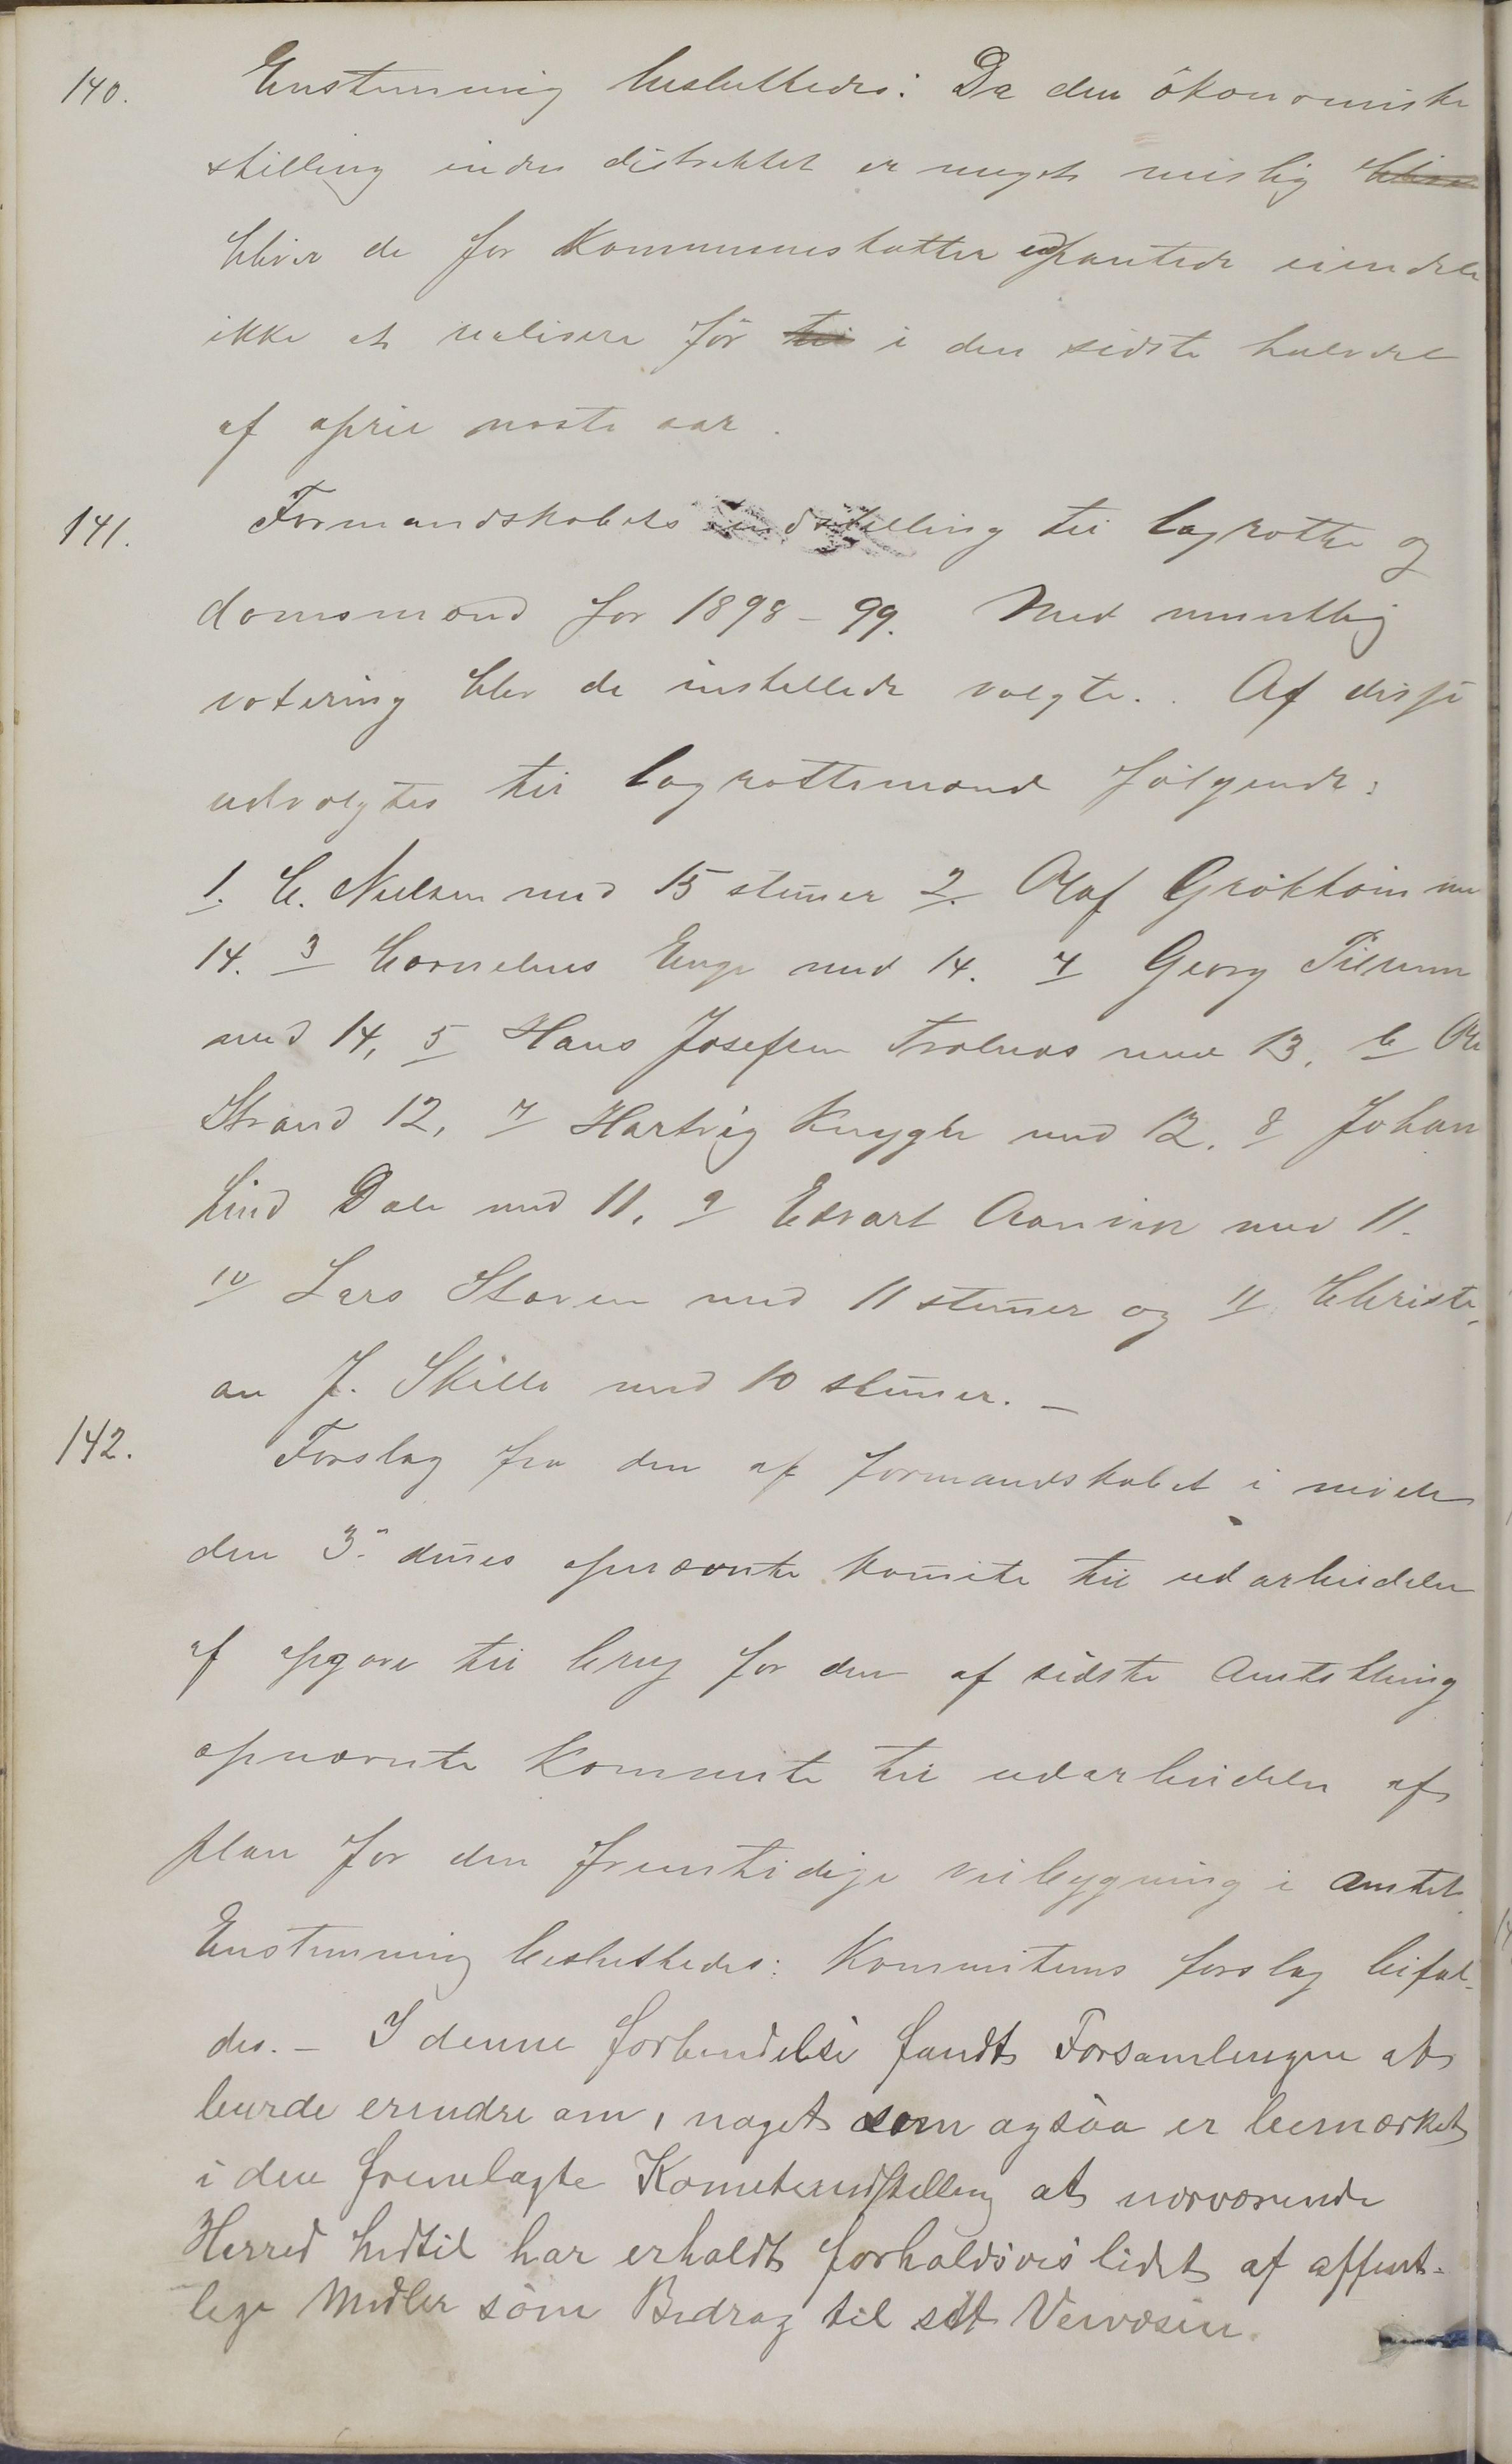 140. Enstemmig besluttedes: Da den ökonomiske
stilling inden distriktet er meget mislig bliver
bliver de for Kommuneskatter udpantede eiendele
ikke at realisere før til i den sidste halvdel
af april næste aar.
141. Formandskabets indstilling til lagrette og
domsmænd for 1898-99. Med mundtlig
votering blev de instillede valgte. Af disse
udvalgtes til lagrettemænd følgende:
1. C. Nielsen med 15 stemmer 2. Olaf Gråkkøin
14. 3 Cornelius Enge med 14. 4 Georg
med 14, 5 Hans Josefsen med 13, 6
Strand 12, 7 Hartvig Knygh med 12. 8 Johan
Lind Dale med 11, 9 Edvart Aanvik med 11.
10 Lars Staven med 11 stemmer og 11 Christi-
an J. Skille med 10 stemmer. -
142. Forslag fra den af formandskabet i møde
den 3. dennes opnævnte komite til udarbeidelse
af opgave til brug for den af sidste Amtsthing
opnævnte Kommite til udarbeidelse af
plan for den fremtidige veibygning i amtet.
Enstemmig besluttedes: Kommiteens forslag bifal-
des. - I denne forbindelse fandt Forsamlingen at
burde erindre om, noget som ogsaa er bemærket
i den fremlagte Komiteindstilling at nærværende
Herred hidtil har erholdt forholdsvis lidet af offent-
lige Midler som Bidrag til sitt Veivæsen.